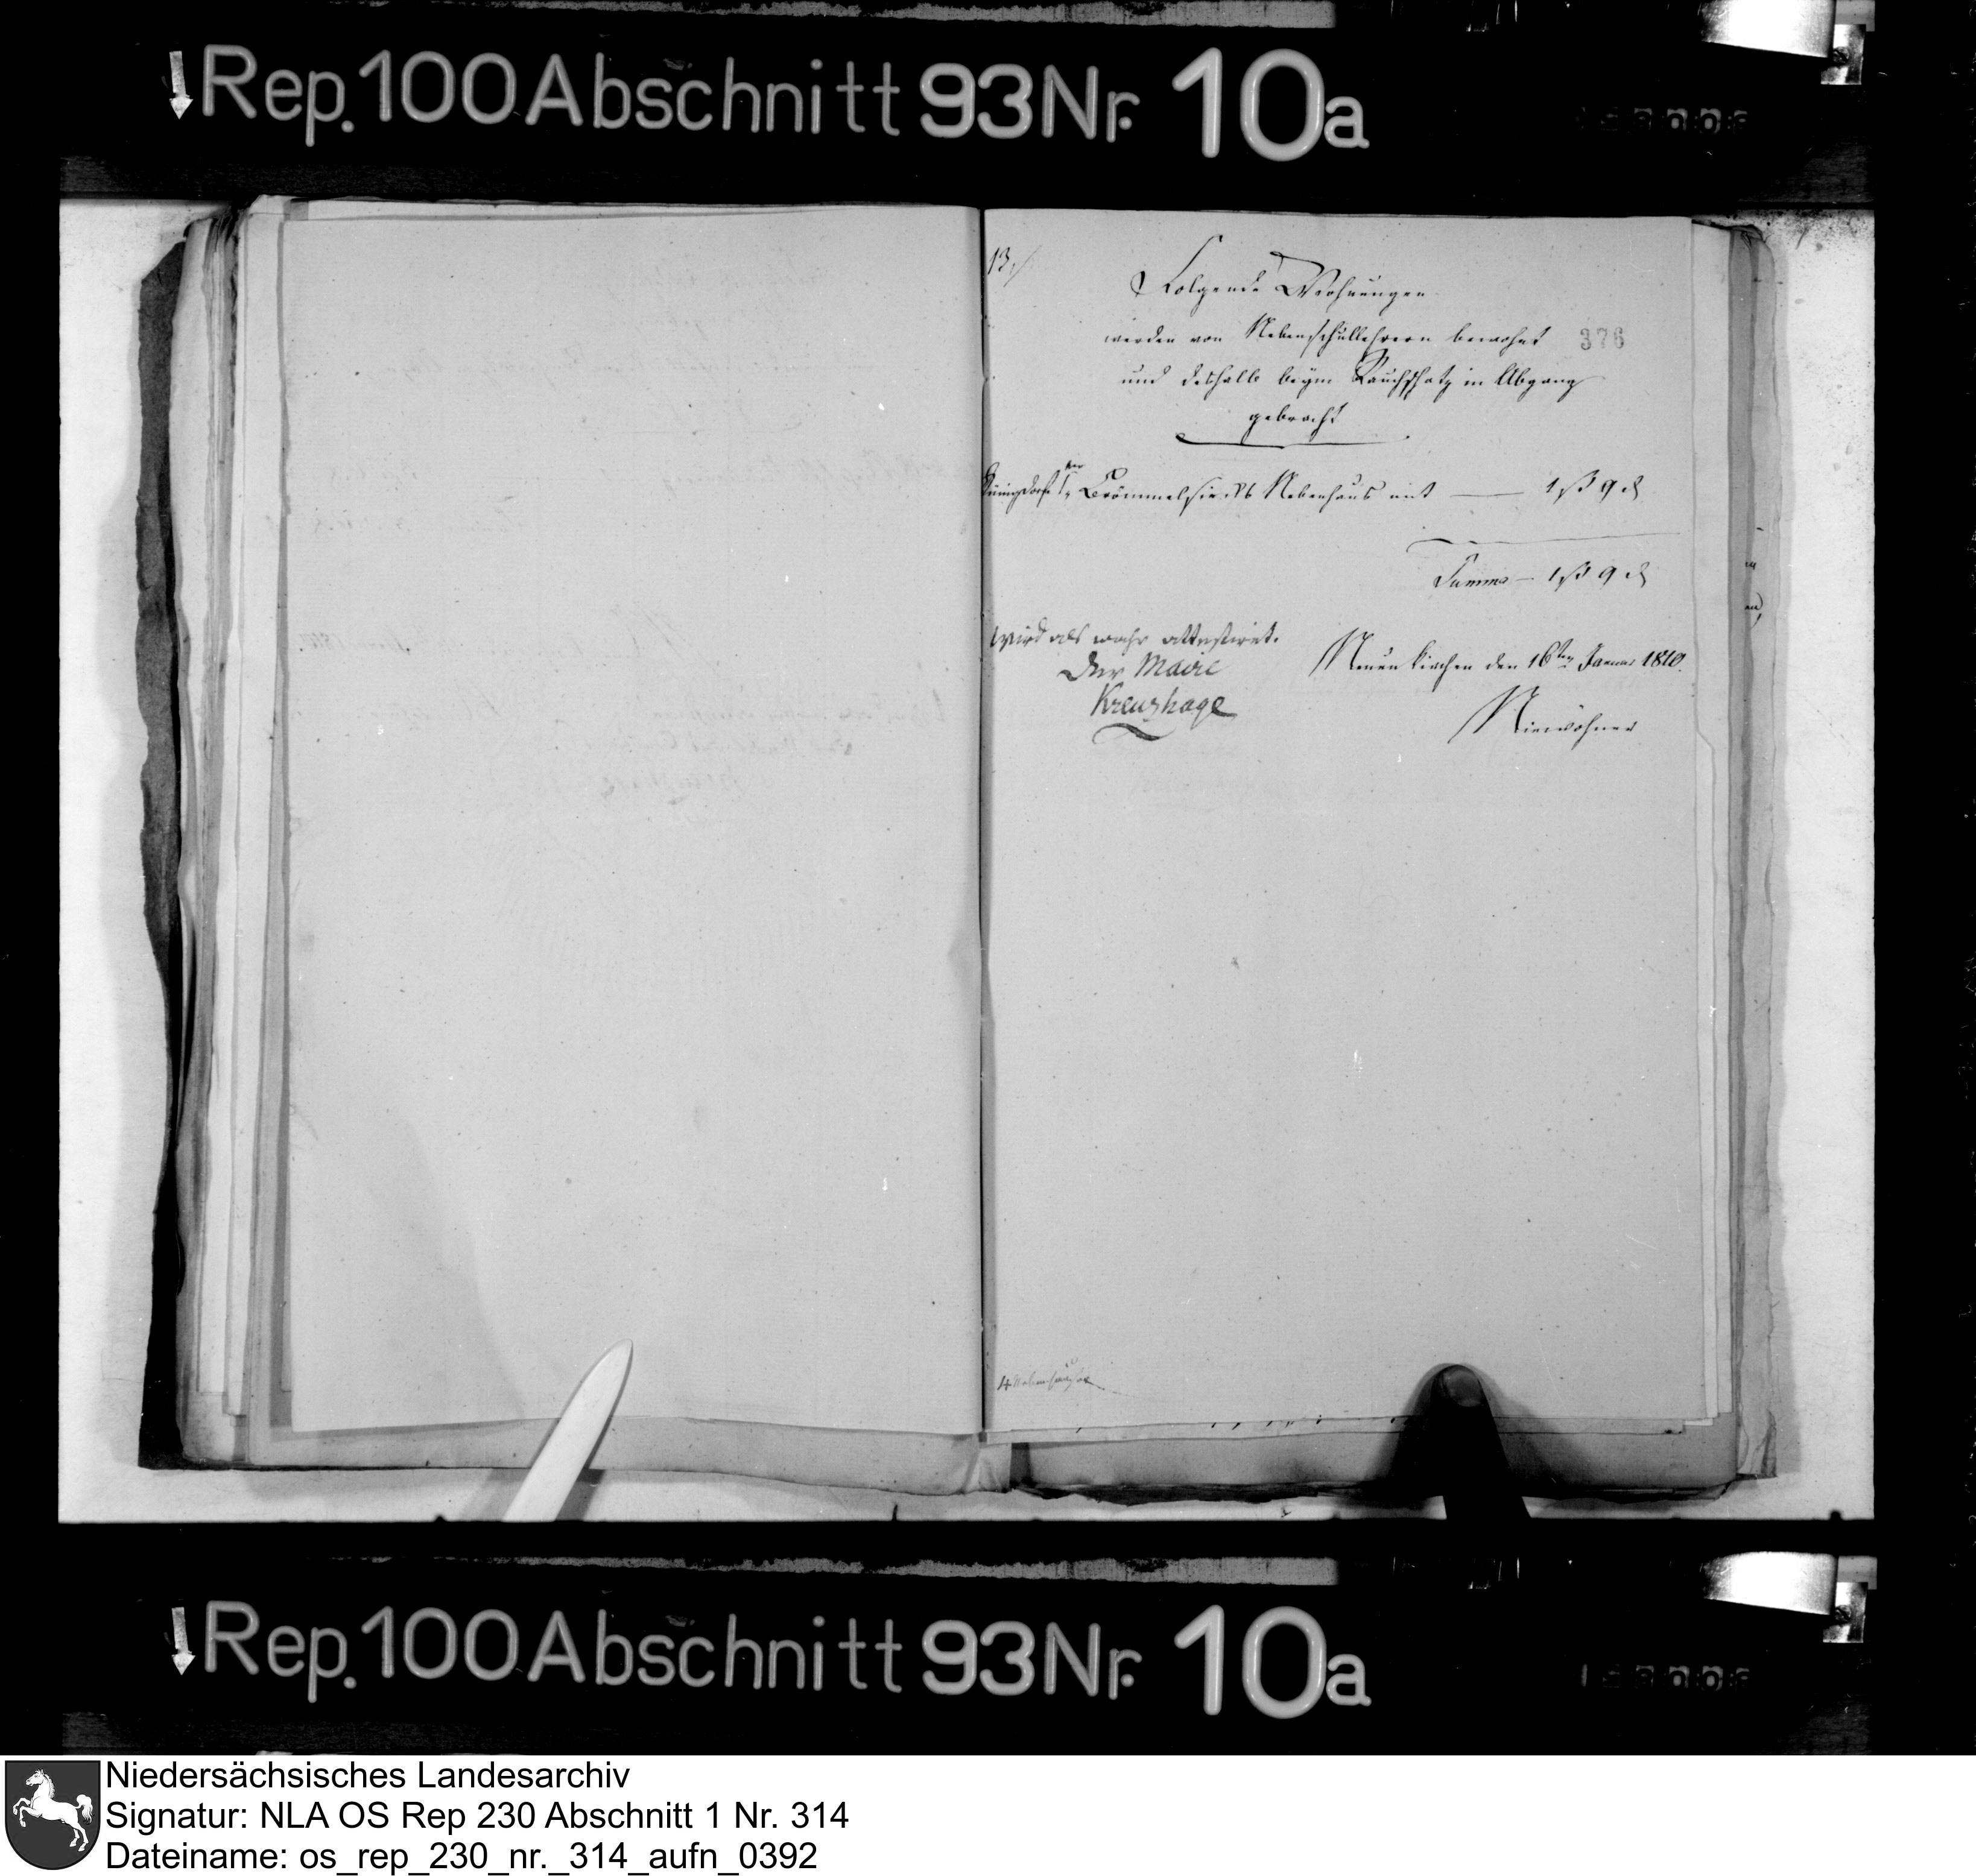 Rep. 100 Abschnitt 93 Nr. 10a
13./
Folgende Wohnungen
werden von Nebenschullehrern bewohnt
376
und deshalb beym Rauchschatz in Abgang
gebracht
1, Brömmelsieks Nebenhaus mit — 1 ß 9 d
Summa — 1 ß 9 d
Wird als wahr attestiret.
Der Maire
Kreuzhage
Neuenkirchen den 16ten Januar 1810.
Niewöhner
4 Nebenhäuser
Rep. 100 Abschnitt 93 Nr. 10a
Niedersächsisches Landesarchiv
Signatur: NLA OS Rep 230 Abschnitt 1 Nr. 314
Dateiname: os_rep_230_nr._314_aufn_0392